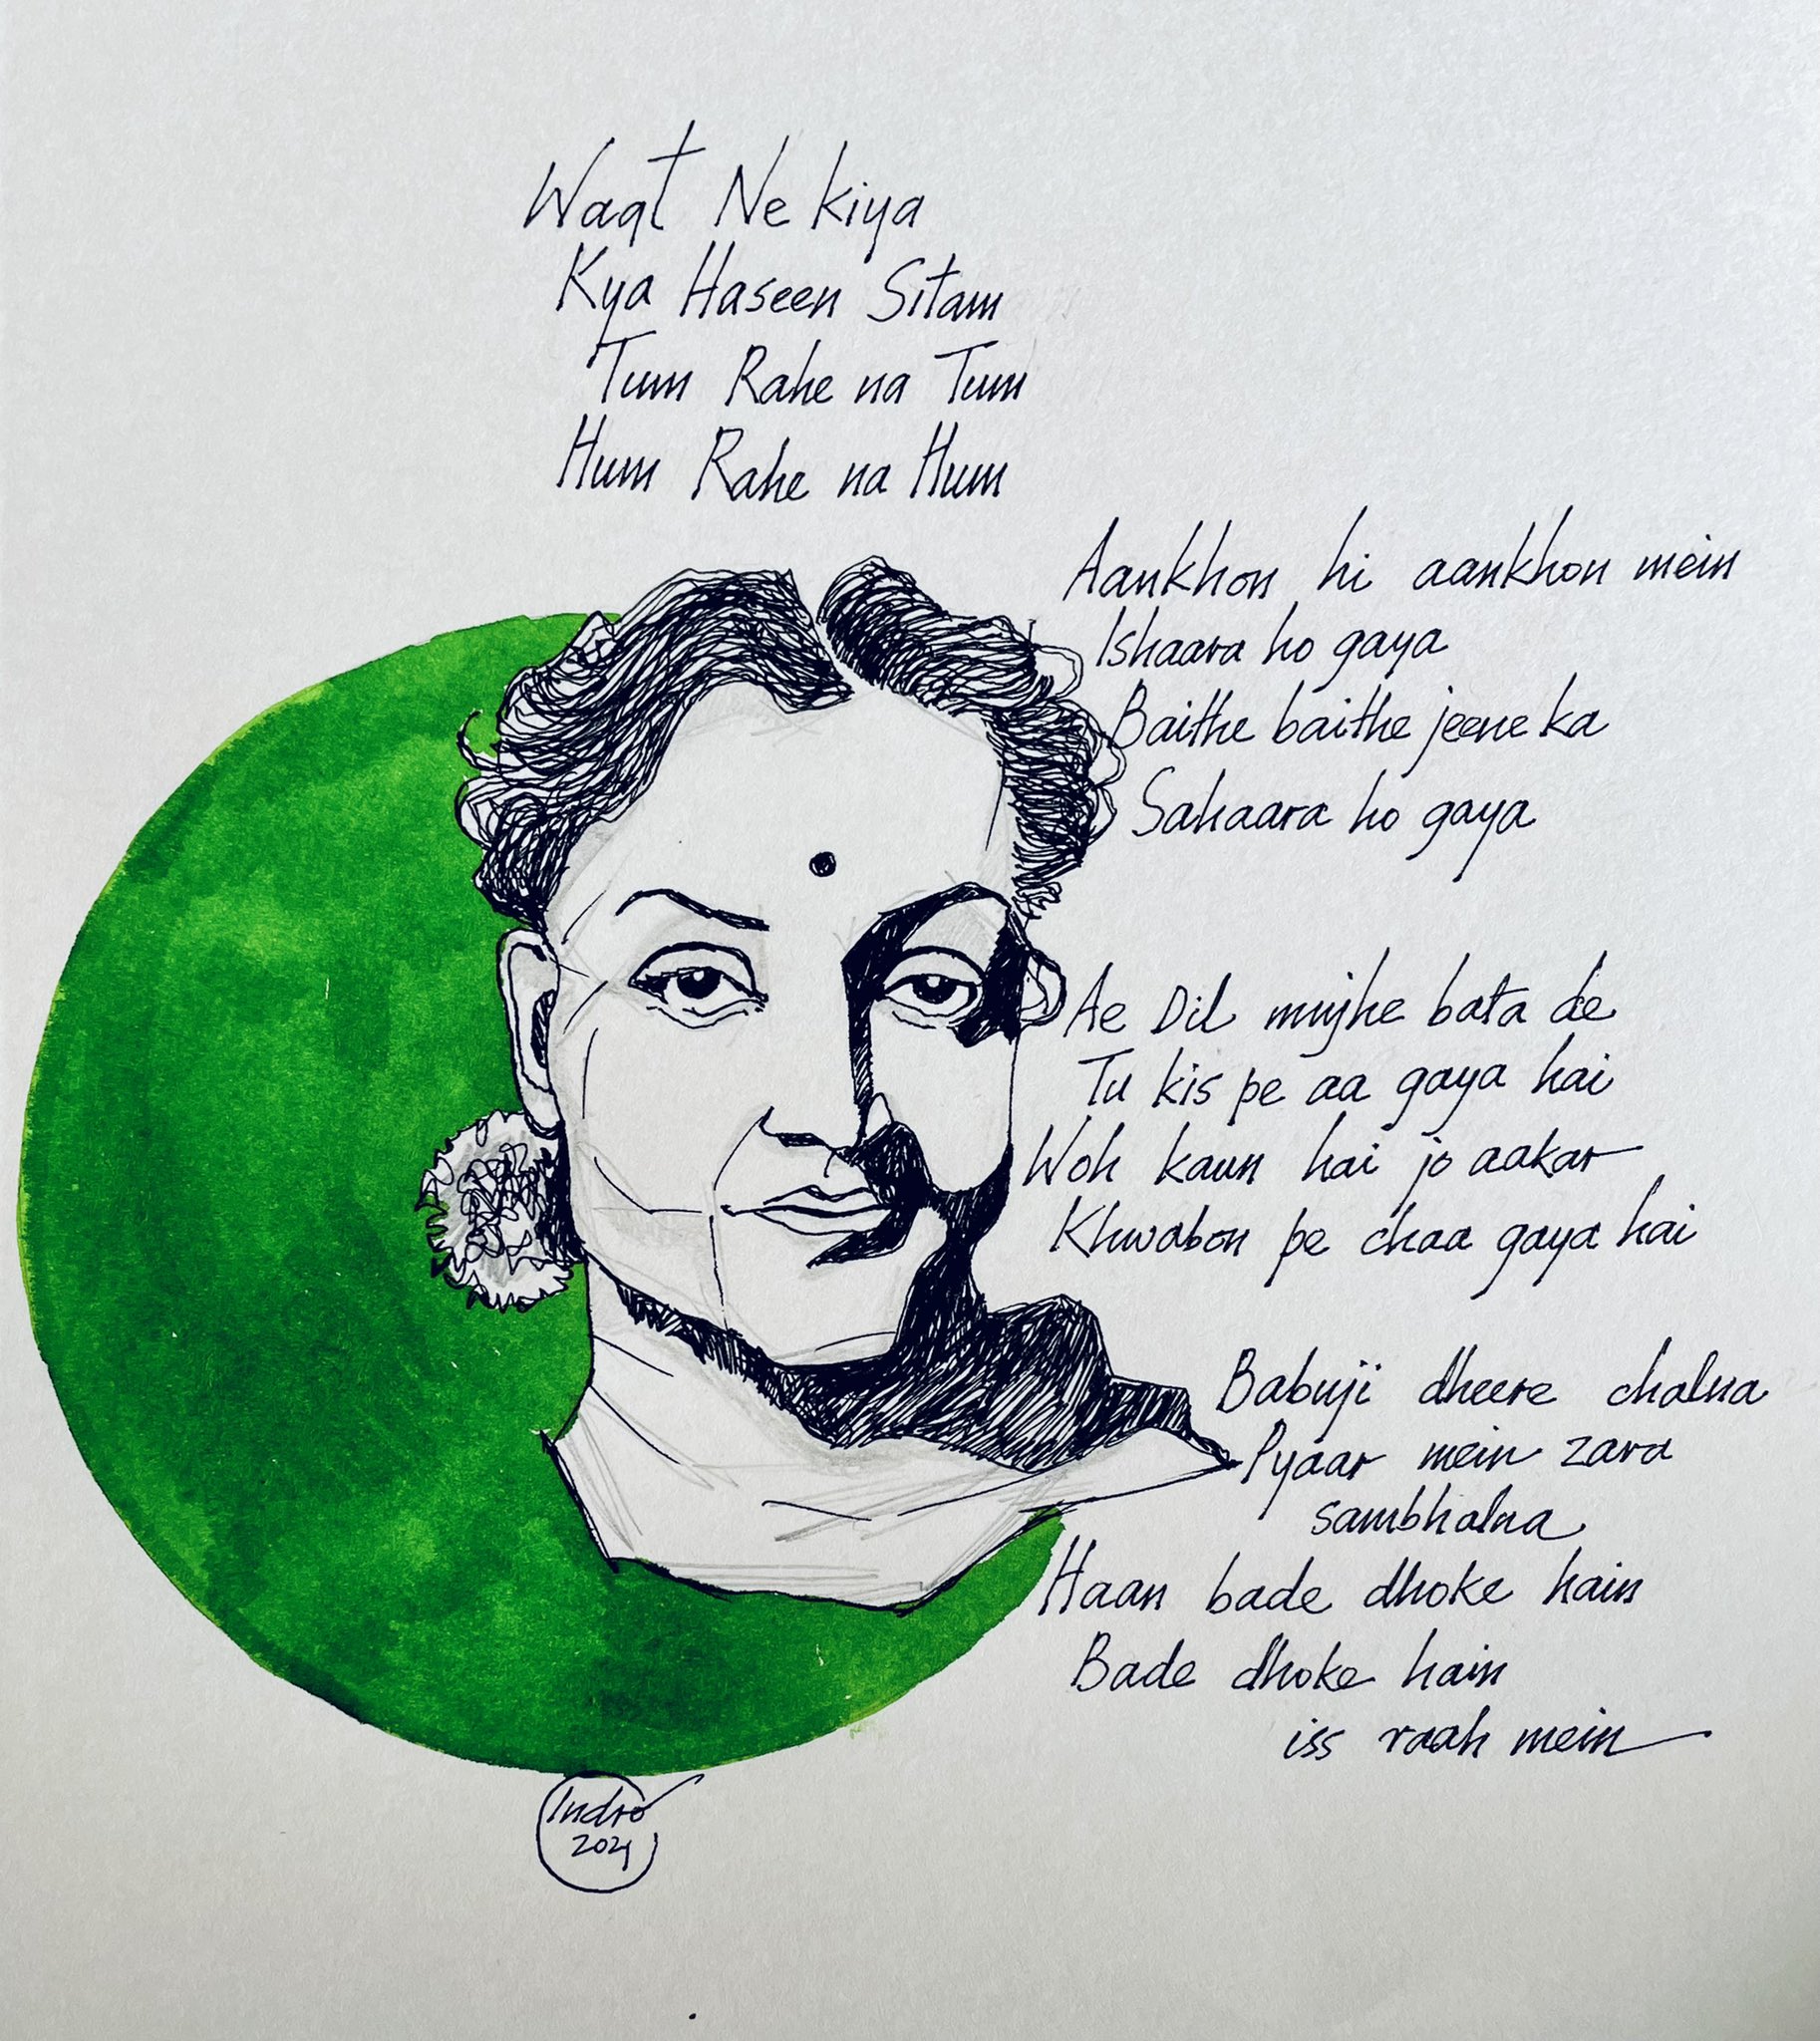 Waqt Ne kiya
Kya Haseen Sitam
Tum Rahe na Tum
Hum Rahe na Hum
Aankhon hi aankhon mein
Ishaara ho gaya
Baithe baithe jeene ka
Sahaara ho gaya
Ae Dil mujhe bata de
Tu kis pe aa gaya hai
Woh kaun hai jo aakar
Khwabon pe chaa gaya hai
Babuji dheere chalna
Pyaar mein zara
sambhalna
Haan bade dhoke hain
Bade dhoke hain
iss raah mein
Indro
2021